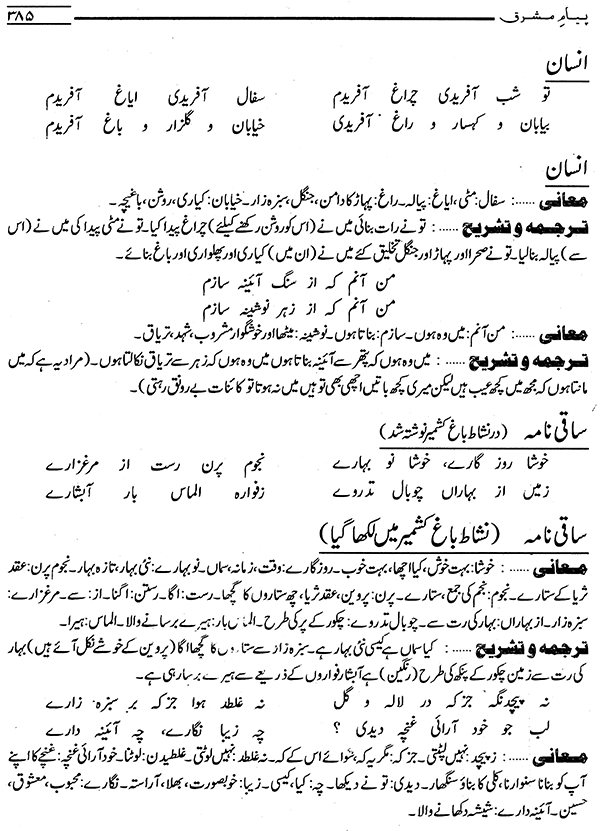 پیامِ مشرق ۳۸۵
انسان
تو شب آفریدی چراغ آفریدم سفال آفریدی ایاغ آفریدم
بیابان و کہسار و راغ آفریدی خیابان و گلزار و باغ آفریدم
انسان
معانی ......: سفال: مٹی، ایاغ: پیالہ۔ راغ: پہاڑ کا دامن، جنگل، سبزہ زار۔ خیابان: کیاری، روش، باغیچہ۔
ترجمہ و تشریح ......: تو نے رات بنائی میں نے (اس کو روشن رکھنے کیلئے) چراغ پیدا کیا۔ تو نے مٹی پیدا کی میں نے (اس
سے) پیالہ بنا لیا۔ تو نے صحرا اور پہاڑ اور جنگل تخلیق کئے میں نے (ان میں) کیاری اور پھلواری اور باغ بنائے۔
من آنم کہ از سنگ آئینہ سازم
من آنم کہ از زہر نوشینہ سازم
معانی ......: من آنم: میں وہ ہوں۔ سازم: بناتا ہوں۔ نوشینہ: میٹھا اور خوشگوار مشروب، شہد، تریاق۔
ترجمہ و تشریح ......: میں وہ ہوں کہ پتھر سے آئینہ بناتا ہوں میں وہ ہوں کہ زہر سے تریاق نکالتا ہوں۔ (مراد یہ ہے کہ میں
مانتا ہوں کہ مجھ میں کچھ عیب ہیں لیکن میری کچھ باتیں اچھی بھی تو ہیں میں نہ ہوتا تو کائنات بے رونق رہتی)۔
ساقی نامہ (در نشاط باغ کشمیر نوشتہ شد)
خوشا روز گارے، خوشا نو بہارے نجوم پرن رست از مرغزارے
زمیں از بہاراں چو بال تدروے زفوارہ الماس بار آبشارے
ساقی نامہ (نشاط باغ کشمیر میں لکھا گیا)
معانی ......: خوشا: بہت خوش، کیا اچھا، بہت خوب۔ روز گارے: وقت، زمانہ، سماں۔ نو بہارے: نئی بہار، تازہ بہار۔ نجوم پرن: عقد
ثریا کے ستارے۔ نجوم: نجم کی جمع، ستارے۔ پرن: پروین، عقد ثریا، چھ ستاروں کا گچھا۔ رست: اگا۔ رستن: اگنا۔ از: سے۔ مرغزارے:
سبزہ زار۔ از بہاراں: بہار کی رت سے۔ چو بال تدروے: چکور کے پر کی طرح۔ الماس بار: ہیرے برسانے والا۔ الماس: ہیرا۔
ترجمہ و تشریح ......: کیا سماں ہے کیسی نئی بہار ہے۔ سبزہ زار سے ستاروں کا گچھا اگا (پروین کے خوشے نکل آئے ہیں) بہار
کی رت سے زمین چکور کے پنکھ کی طرح (رنگین) ہے آبشار فواروں کے ذریعے سے ہیرے برسا رہی ہے۔
نہ پیچد نگہ جز کہ در لالہ و گل نہ غلطد ہوا جز کہ بر سبزہ زارے
لب جو خود آرائی غنچہ دیدی؟ چہ زیبا نگارے، چہ آئینہ دارے
معانی ......: نہ پیچد: نہیں لپٹتی۔ جز کہ: مگر یہ کہ، سوائے اس کے کہ۔ نہ غلطد: نہیں لوٹتی۔ غلطیدن: لوٹنا۔ خود آرائی غنچہ: غنچے کا اپنے
آپ کو بنانا سنوارنا، کلی کا بناؤ سنگھار۔ دیدی: تو نے دیکھا۔ چہ: کیا، کیسی۔ زیبا: خوبصورت، بھلا، آراستہ۔ نگارے: محبوب، معشوق،
حسین۔ آئینہ دارے: شیشہ دکھانے والا۔